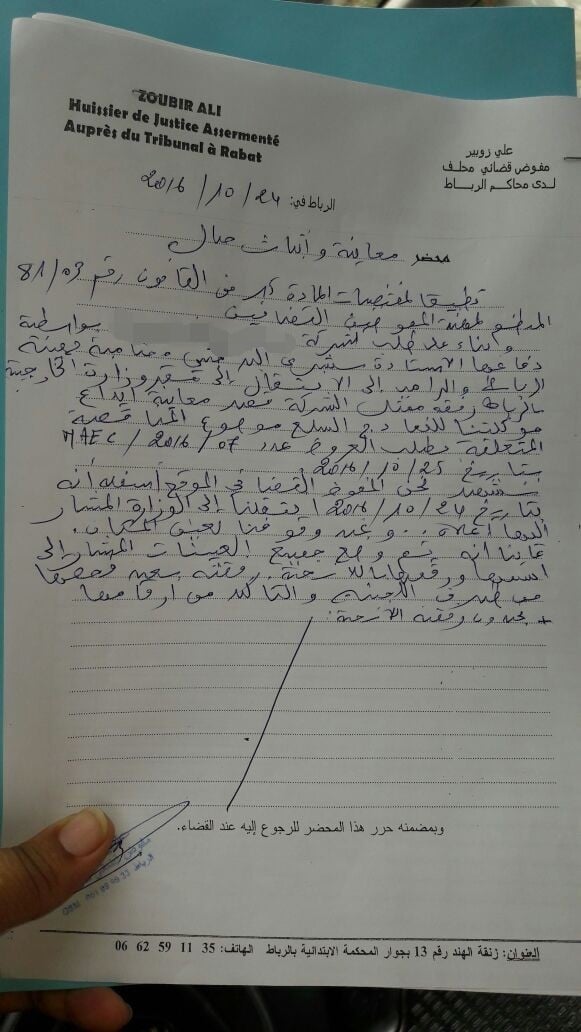 ZOUBIR ALI
Huissier de Justice Assermenté
Auprès du Tribunal à Rabat
علي زوبير
مفوض قضائي محلف
لدى محاكم الرباط
الرباط في: 2016/10/24
محضر معاينة و اثبات حال
تطبيقا لمقتضيات المادة من القانون رقم 81/03
المنظم لمهنة المفوضين القضائيين
و بناء على طلب لشركة بواسطة
دفاعها الاستاذة بهيئة
الرباط و الرامي إلى الانتقال إلى مقر وزارة الخارجية
بالرباط رفقة ممثل الشركة قصد معاينة ايداع
السلع موضوع المناقصة
المتعلقة بطلب العروض عدد 07 / 2016 / MAEC
بتاريخ 2016/10/25
نشهد نحن المفوض القضائي الموقع أسفله أنه
بتاريخ 2016/10/24 انتقلنا إلى الوزارة المشار
إليها أعلاه .. و عند وقوفنا بعين المكان
عاينا أنه تم وضع جميع العينات المشار إلى
من طرف اللجنة و التأكد من ارقامها
وبمضمنه حرر هذا المحضر للرجوع إليه عند القضاء.
العنوان: زنقة الهند رقم 13 بجوار المحكمة الابتدائية بالرباط الهاتف: 35 11 59 62 06